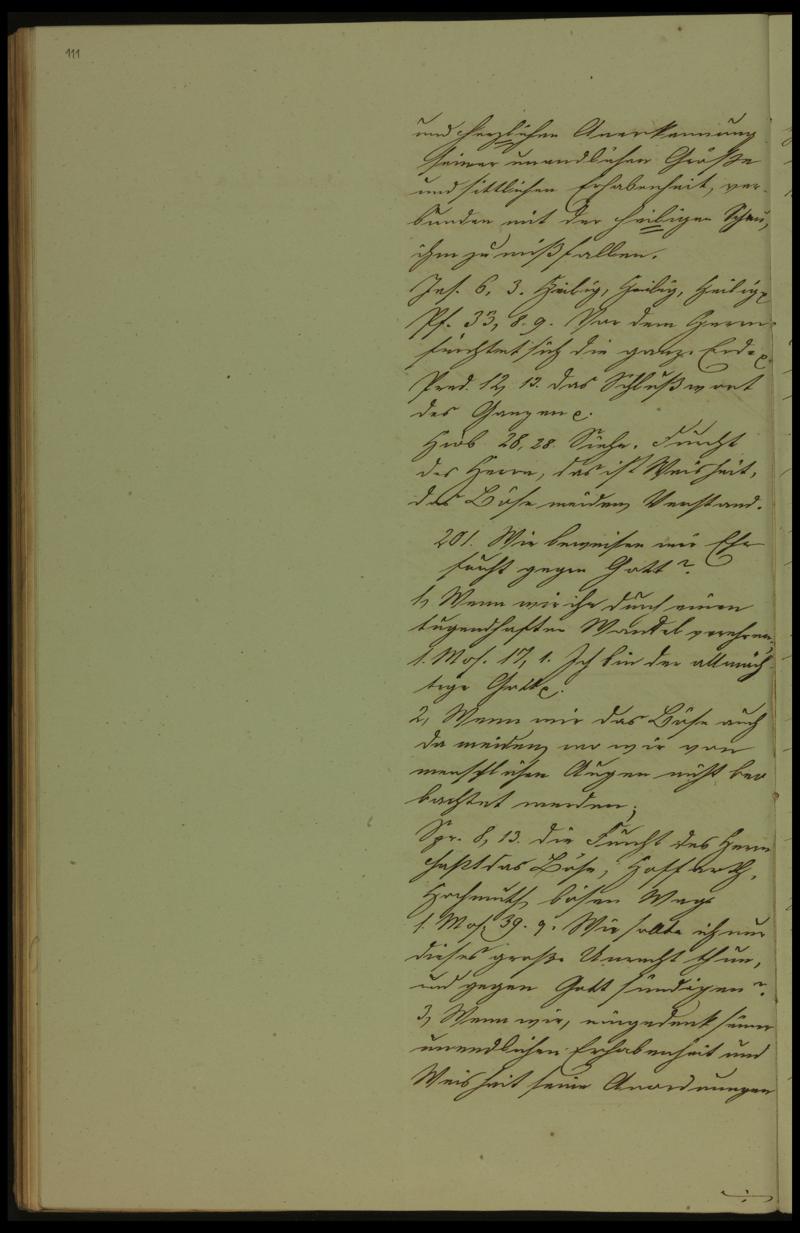 111
und herzlichen Anerkennung
seiner unendlichen Größe
und sittlichen Erhabenheit, ver-
bunden mit der heiligen Scheu,
ihm zu mißfallen.
Jes. 6, 3. Heilig, heilig, heilig
Ps. 33, 8. 9. Vor dem Herrn
fürchtet sich die ganze Erde
Pred. 12, 13. das Schlußwort
des Ganzen
Hiob 28, 28. Siehe, Furcht
des Herrn, das ist Weisheit,
das Böse meiden, Verstand.
201. Wie beweisen wir Ehr
furcht gegen Gott?
1, Wenn wir ihn durch einen
tugendhaften Wandel verehren;
1. Mos. 17, 1. Ich bin der allmäch
tige Gott
2, Wenn wir das Böse auch
da meiden, wo wir von
menschlichen Augen nicht beo
bachtet werden;
Spr. 8, 13. die Furcht des Herrn
haßt das Böse, Hoffarth,
Hochmuth, bösen Weg
1. Mos. 39. 9. Wie sollte ich nur
dieses große Unrecht thun,
und gegen Gott sündigen?
3, Wenn wir, eingedenk seiner
unendlichen Erhabenheit und
Weisheit seine Anordnungen